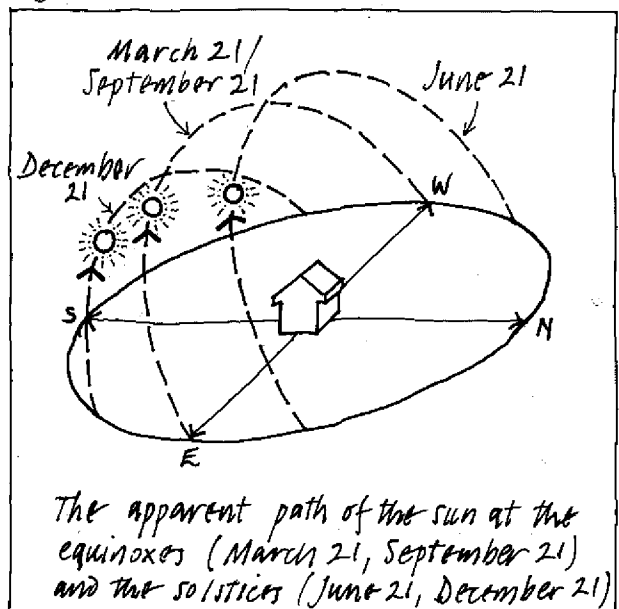 March 21/
September 21
June 21
December
21
W
S
N
E
The apparent path of the sun at the
equinoxes (March 21, September 21)
and the solstices (June 21, December 21)